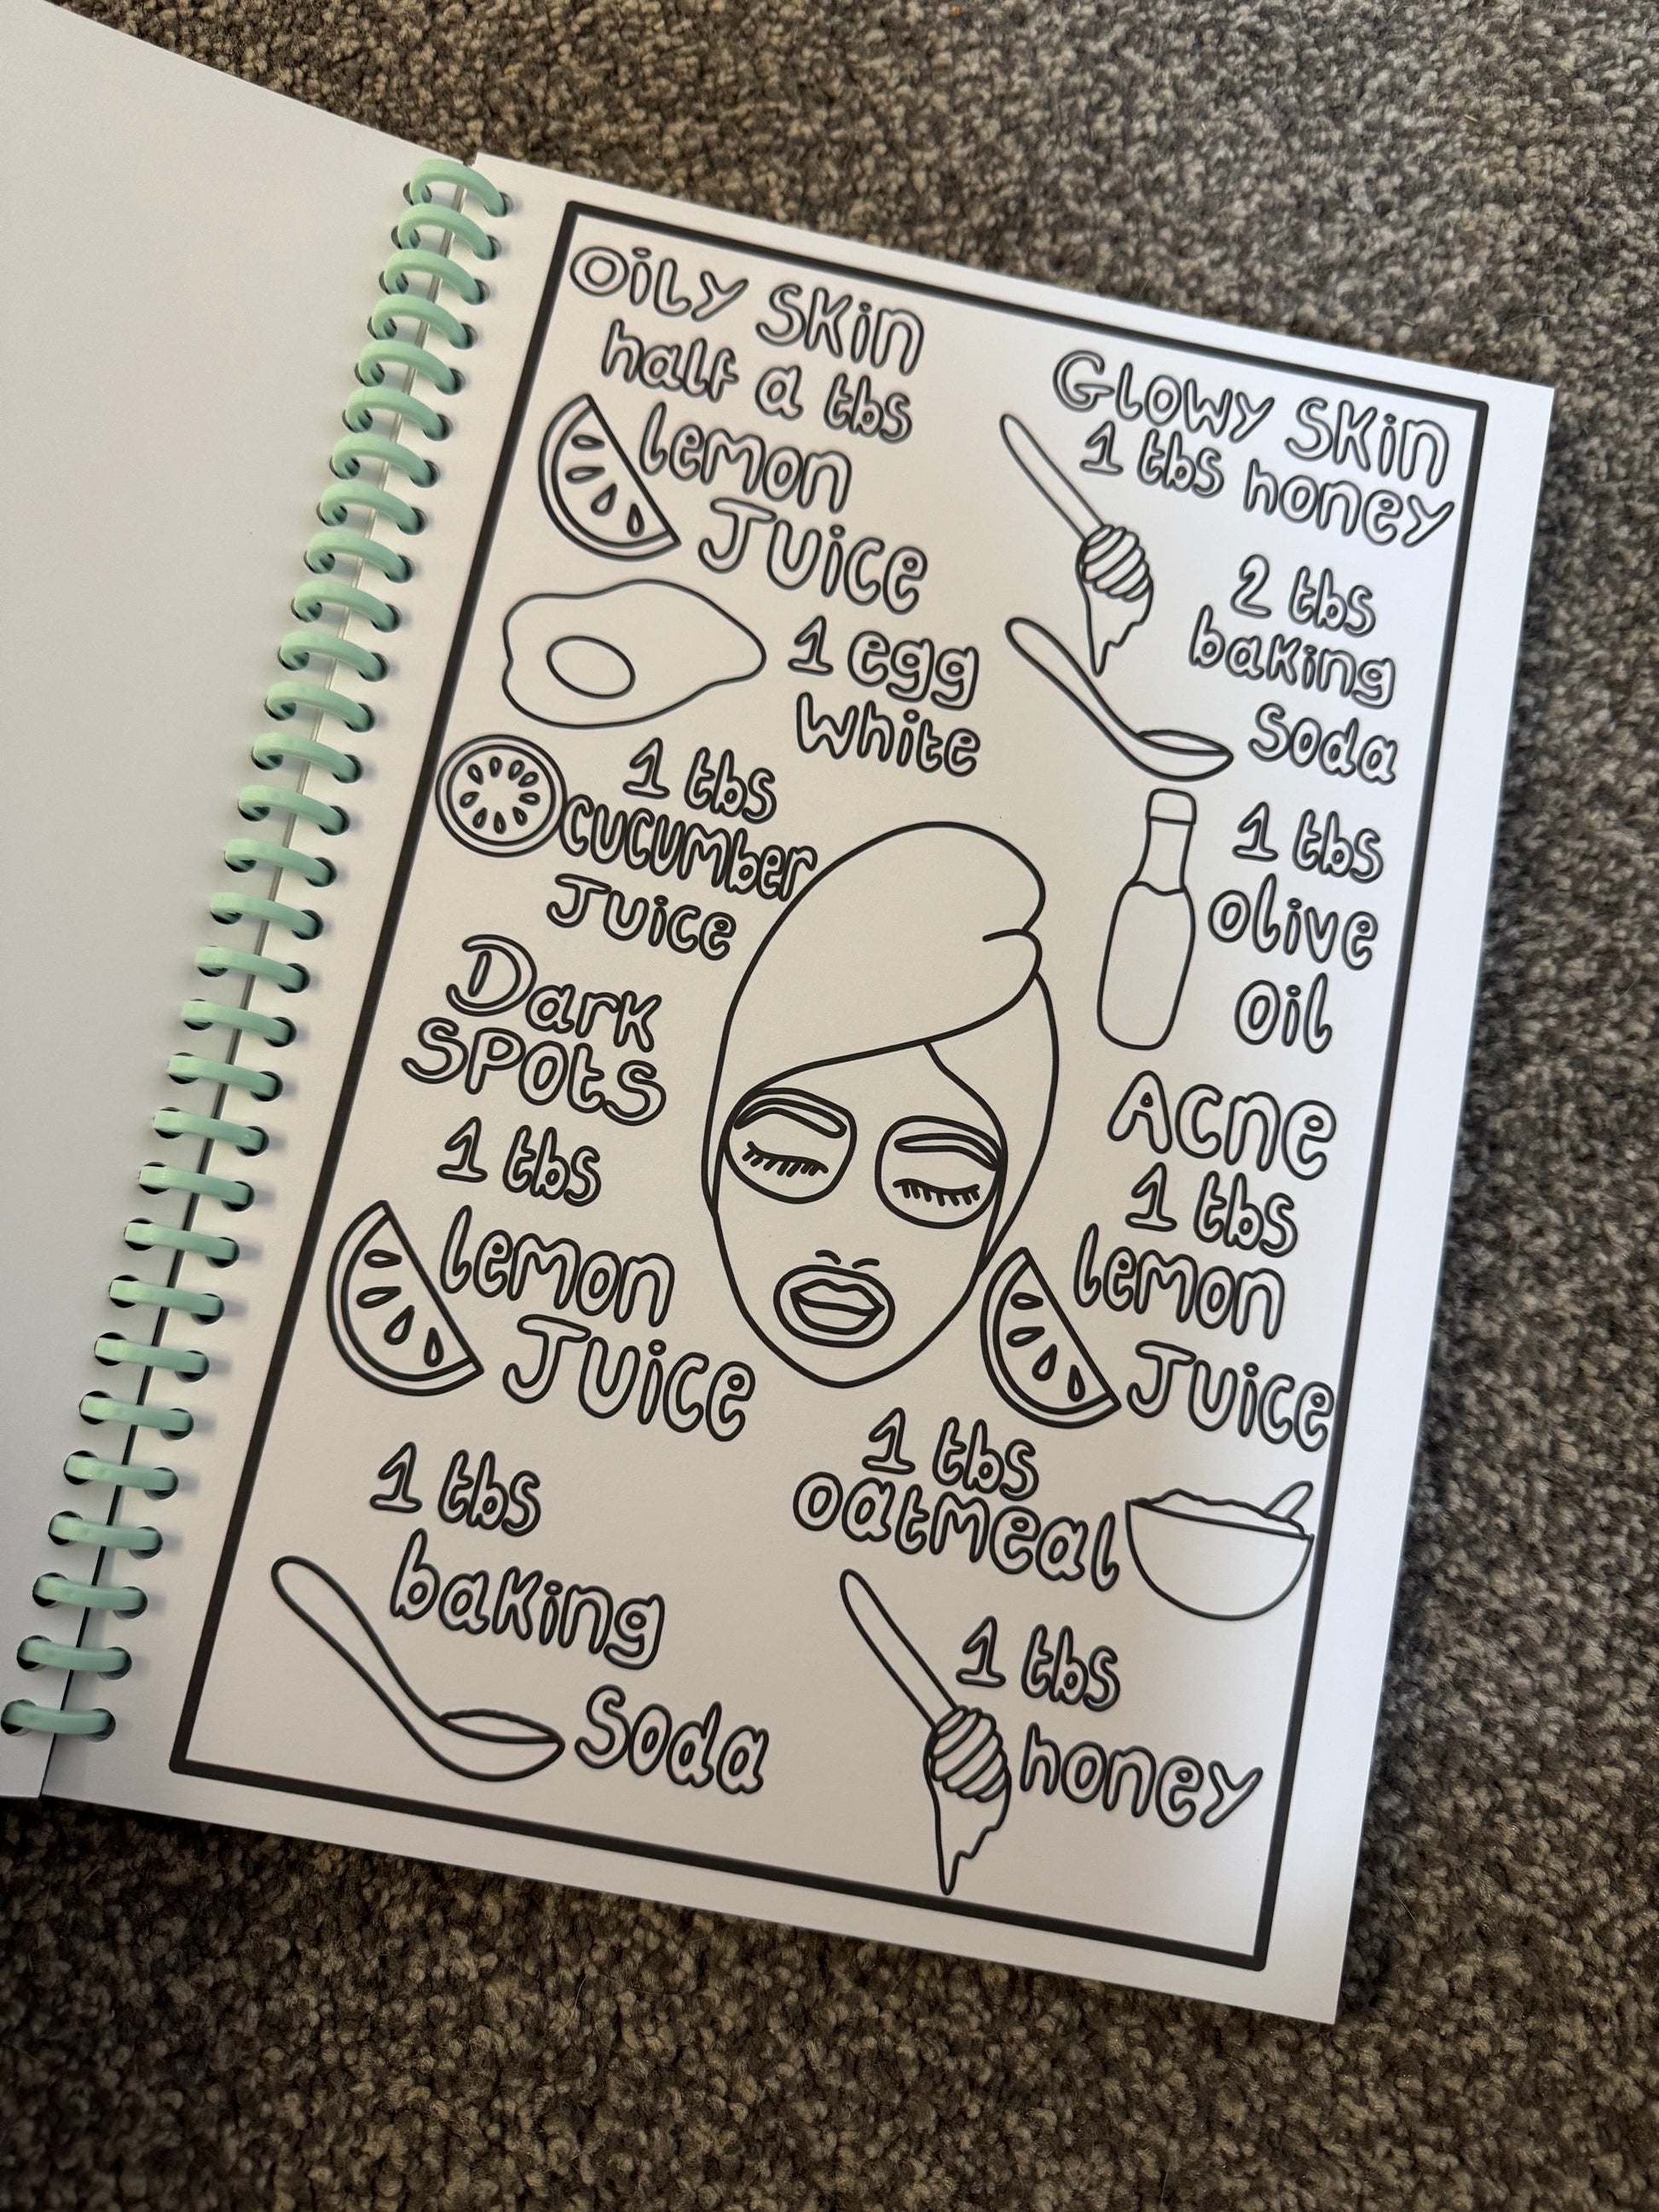 Oily Skin
half a tbs
lemon
Juice
1 egg
white
1 tbs
cucumber
Juice
Dark
Spots
1 tbs
lemon
Juice
1 tbs
baking
Soda
Glowy Skin
1 tbs honey
2 tbs
baking
Soda
1 tbs
Olive
Oil
Acne
1 tbs
lemon
Juice
1 tbs
Oatmeal
1 tbs
honey